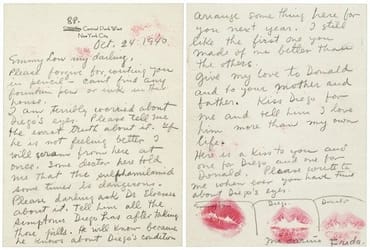 88.
Central Park West
New York City
Oct. 24 1940.
Emmy Lou my darling,
Please forgive for writing you
in pencil – can't find any
fountain pen or ink in this
house.
I am terribly worried about
Diego's eyes. Please tell me
the exact truth about it. If
he is not feeling better I
will scram from here at
once. Some doctor here told
me that the sulphamilamid
some times is dangerous.
Please darling ask Dr Eloesser
about it. Tell him all the
symptoms Diego has after taking
those pills. He will know because
he knows about Diego's condition
arrange some thing here for
you next year. I still
like the first one you
made of me better than
the others.
Give my love to Donald
and to your mother and
father. Kiss Diego for
me and tell him I love
him more than my own
life.
Here is a kiss to you and
one for Diego and one for
Donald. Please write to
me when ever you have time
about Diego's eyes.
Diego
Donald
mi cariño
Frida.